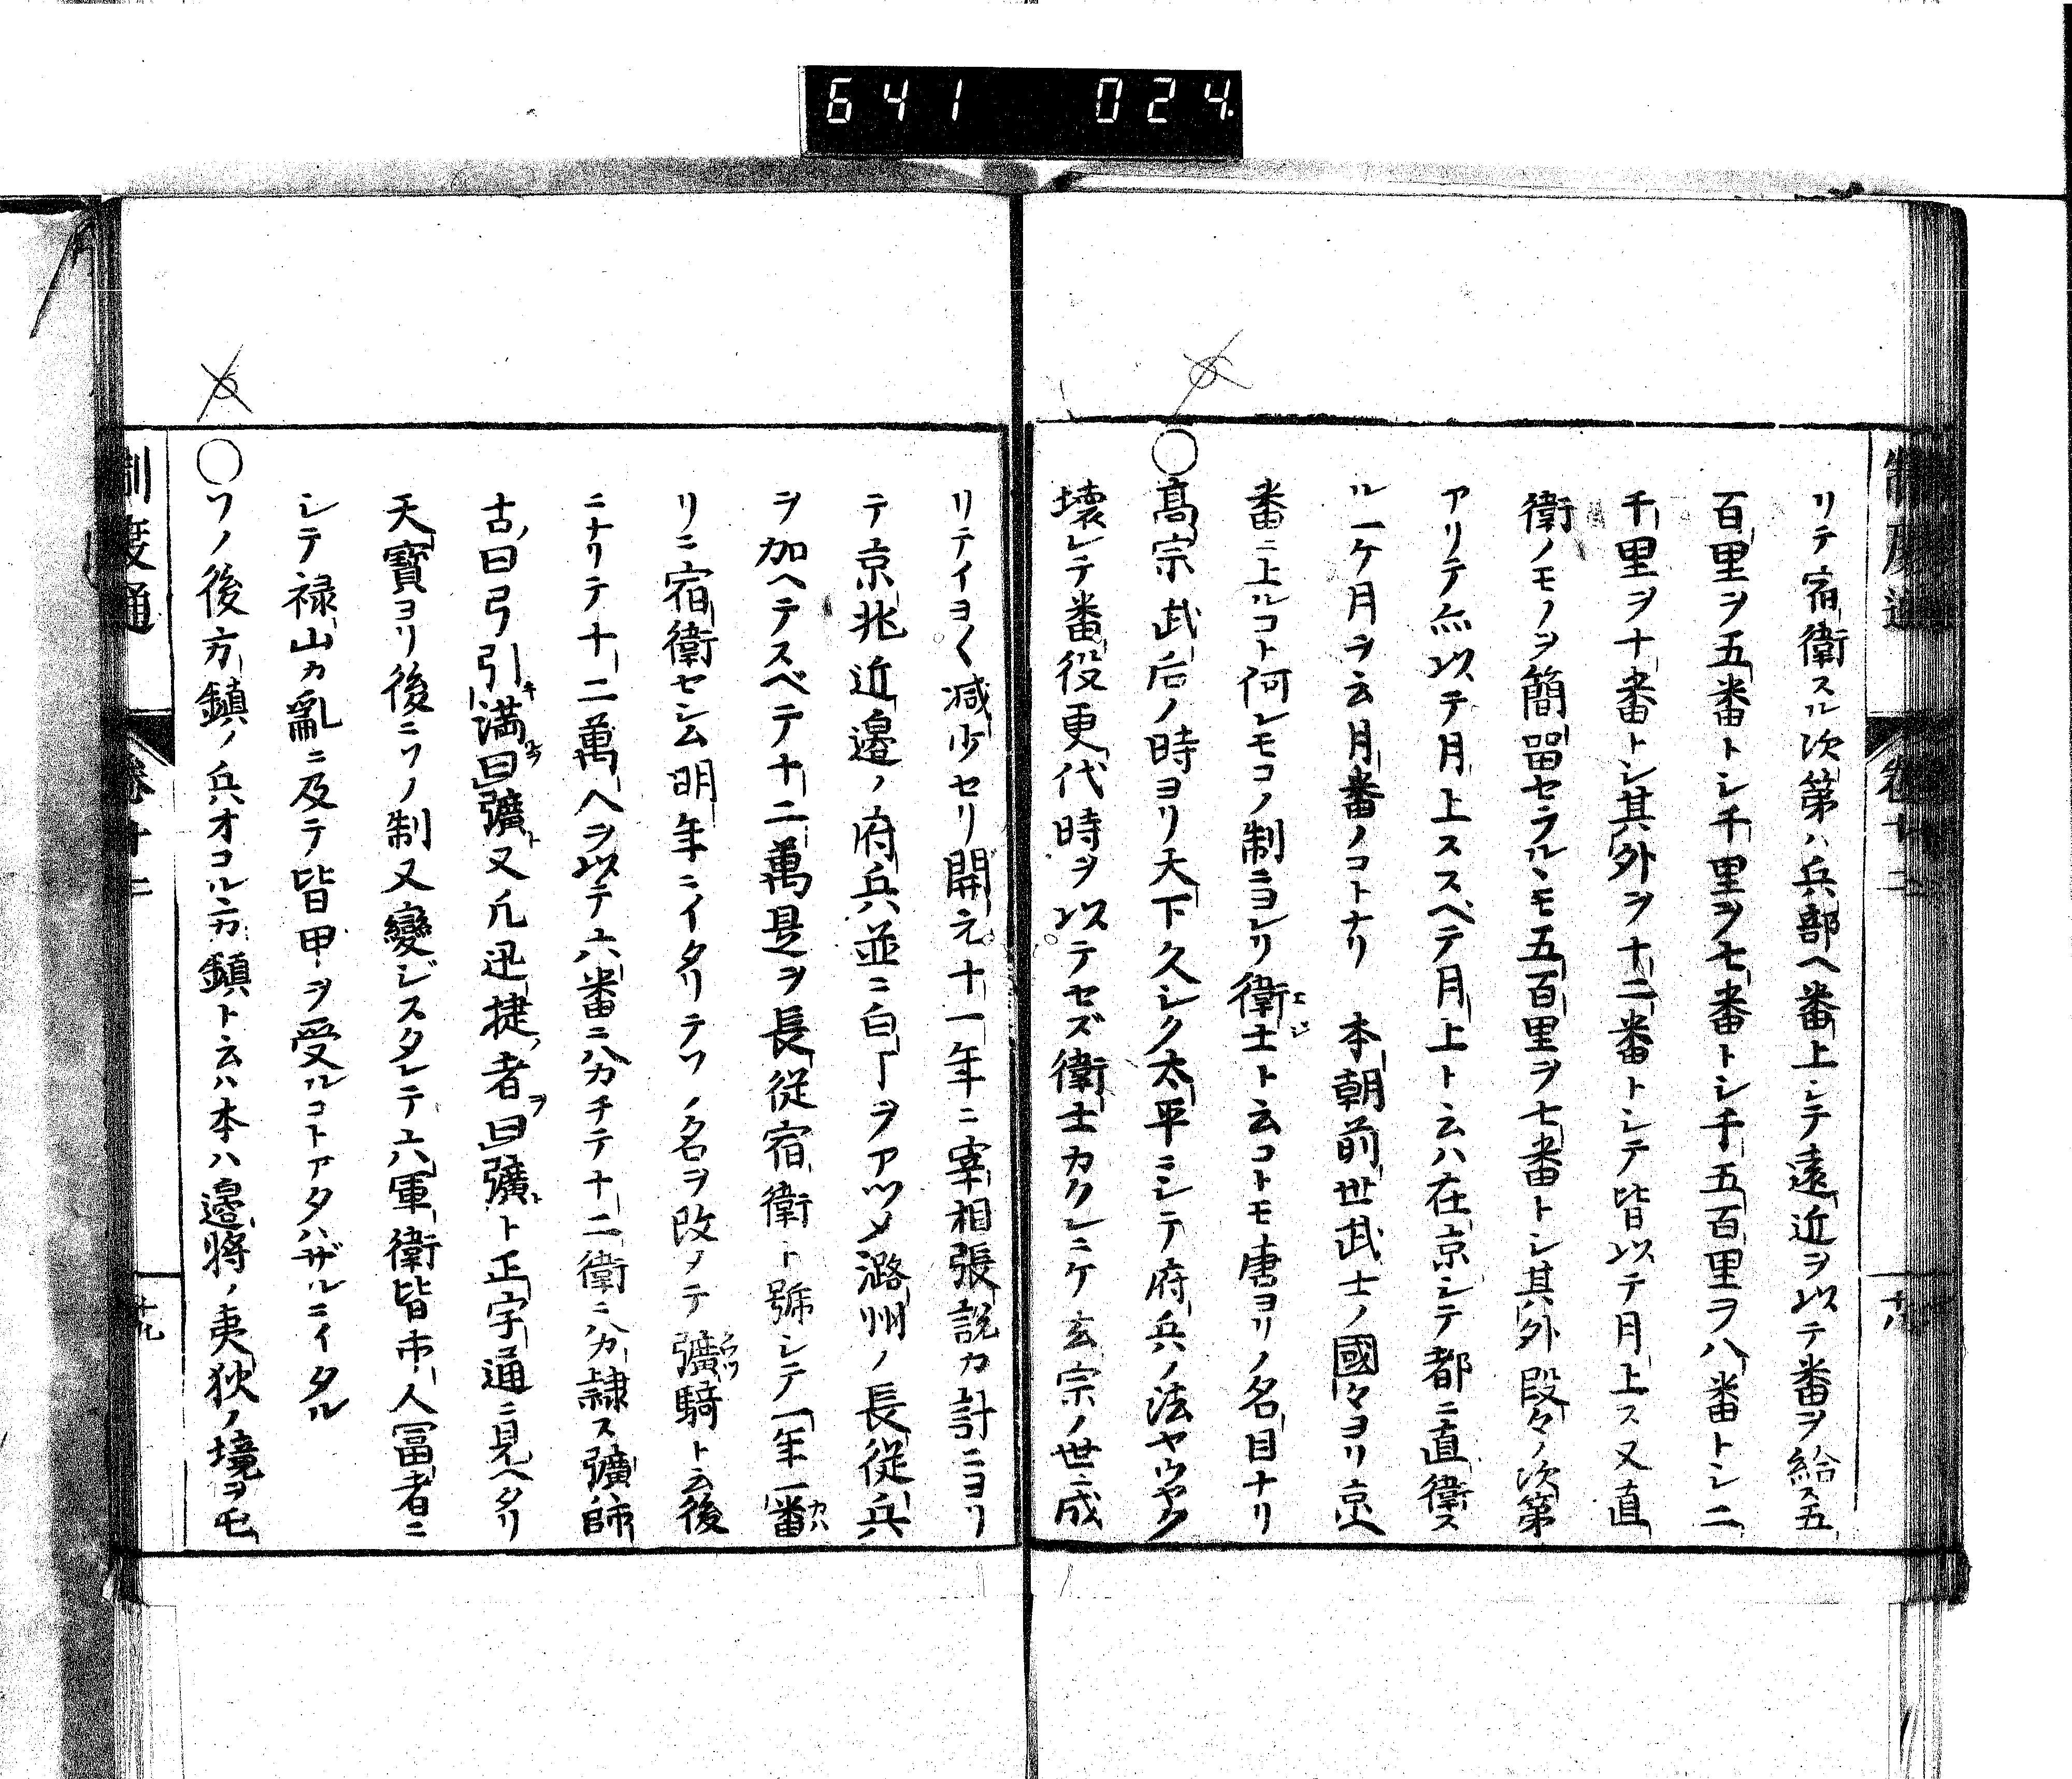 641 024
制度通 卷十二 十八
リテ宿衛スル次第ハ兵部ヘ番上シテ遠近ヲ以テ番ヲ給ス五
百里ヲ五番トシ千里ヲ七番トシ千五百里ヲ八番トシ二
千里ヲ十番トシ其外ヲ十二番トシテ皆以テ月上ス又直
衛ノモノヲ簡留セラルヽモ五百里ヲ七番トシ其外段々ノ次第
アリテ亦以テ月上ススベテ月上ト云ハ在京シテ都ニ直衛ス
ル一ケ月ヲ云月番ノコトナリ 本朝前世武士ノ國々ヨリ京ヘ
番ニ上ルコト何レモコノ制ニヨレリ衛士ト云コトモ唐ヨリノ名目ナリ
○高宗武后ノ時ヨリ天下久シク太平ニシテ府兵ノ法ヤウヤク
壊レテ番役更代時ヲ以テセズ衛士カクレニケ玄宗ノ世ニ成
リテイヨ〱減少セリ開元十一年ニ宰相張説カ計ニヨリ
テ京兆近邉ノ府兵並ニ白丁ヲアツメ潞州ノ長従兵
ヲ加ヘテスベテ十二萬是ヲ長従宿衛ト號シテ一年二番カハ
リニ宿衛セシム明年ニイタリテソノ名ヲ改メテ彍騎ト云後
ニナリテ十二萬人ヲ以テ六番ニ分チテ十二衛ニ分隷ス彍師
古曰弓引満曰彍又凡迅捷者曰彍ト正字通ニ見ヘタリ
天寳ヨリ後ニソノ制又變ジスタレテ六軍衛皆市人冨者ニ
シテ禄山カ亂ニ及テ皆甲ヲ受ルコトアタハザルニイタル
○ソノ後方鎮ノ兵オコルニ方鎮ト云ハ本ハ邉将ノ夷狄ノ境ヲモ
制度通 卷十二 十九